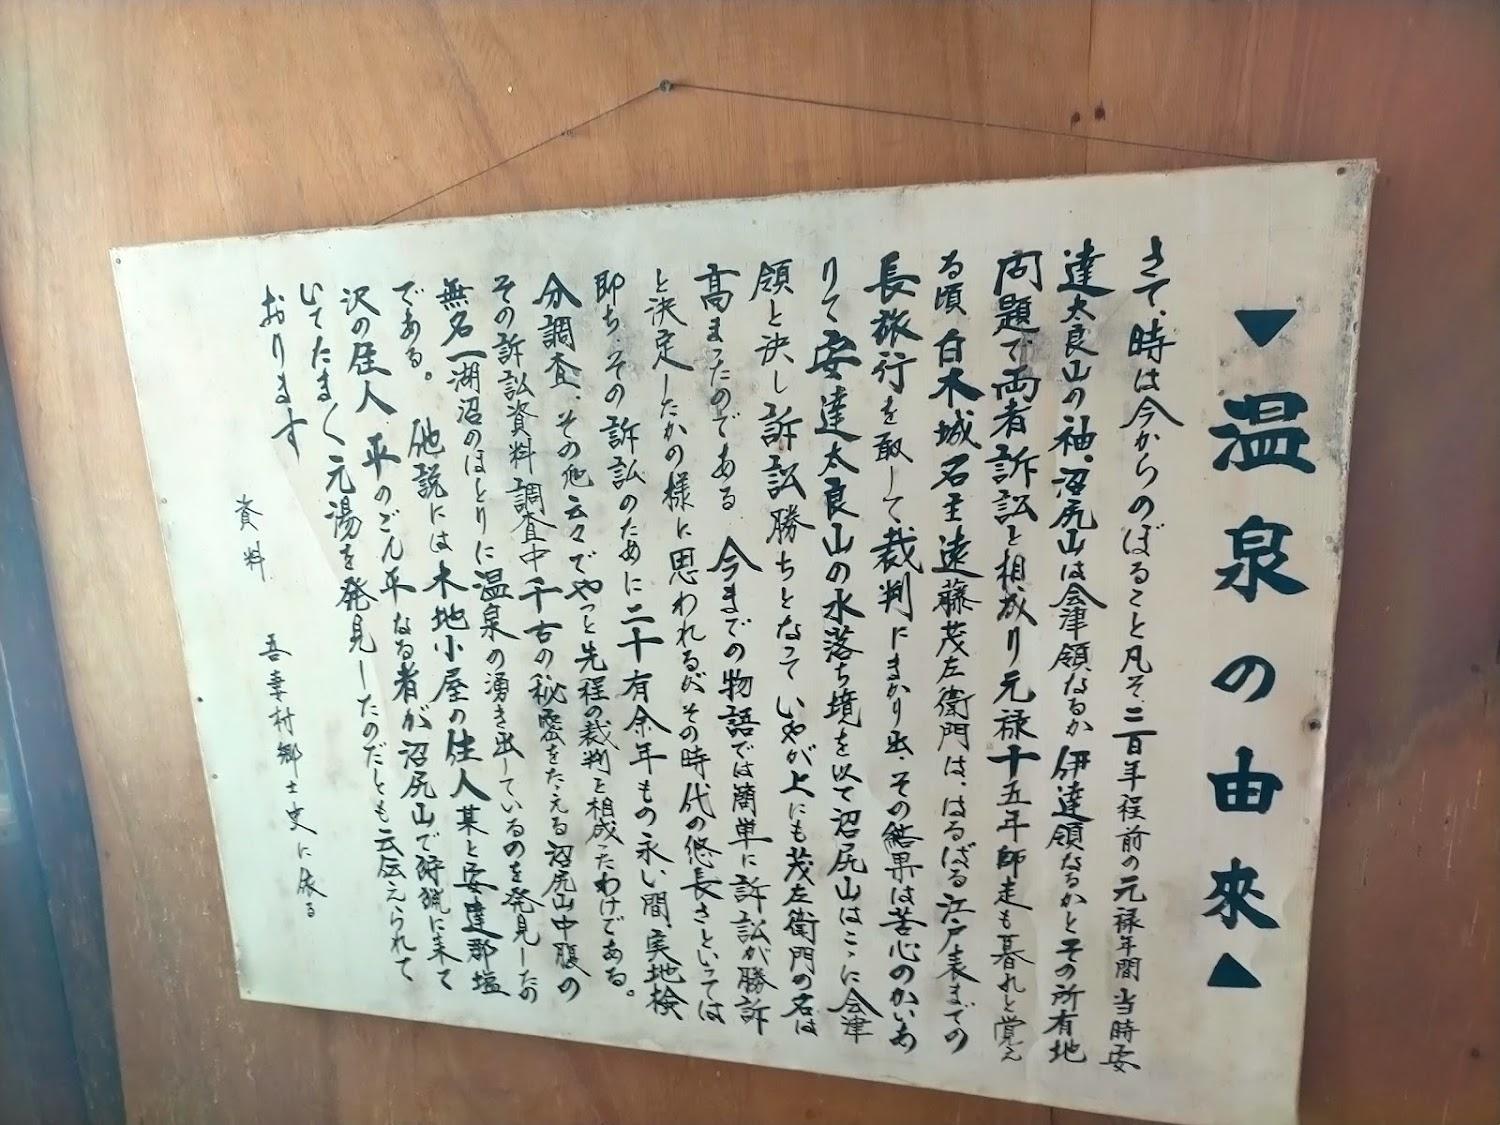 ▼温泉の由來▲
さて、時は今からのぼること凡そ二百年程前の元禄年間当時安
達太良山の袖、沼尻山は会津領なるか伊達領なるかとその所有地
問題で両者訴訟と相成り元禄十五年師走も暮れと覚え
る頃白木城名主遠藤茂左衛門は、はるばる江戸表までの
長旅行を敢して裁判にまかり出、その結果は苦心のかいあ
りて安達太良山の水落ち境を以て沼尻山はここに会津
領と決し訴訟勝ちとなっていやが上にも茂左衛門の名は
高まったのである 今までの物語では簡単に訴訟が勝訴
と決定したかの様に思われるがその時代の悠長さといっては
即ち、その訴訟のために二十有余年もの永い間、実地検
分調査、その他云々でやっと先程の裁判と相成ったわけである。
その訴訟資料調査中千古の秘密をたたえる沼尻山中腹の
無名一湖沼のほとりに温泉の湧き出しているのを発見したの
である。 他説には木地小屋の住人某と安達郡塩
沢の住人、平のごん平なる者が沼尻山で狩猟に来て
いてたまく元湯を発見したのだとも云伝えられて
おります
資料 吾妻村郷土史に依る